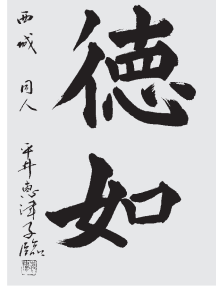 徳如
西城 同人 平井惠津子臨